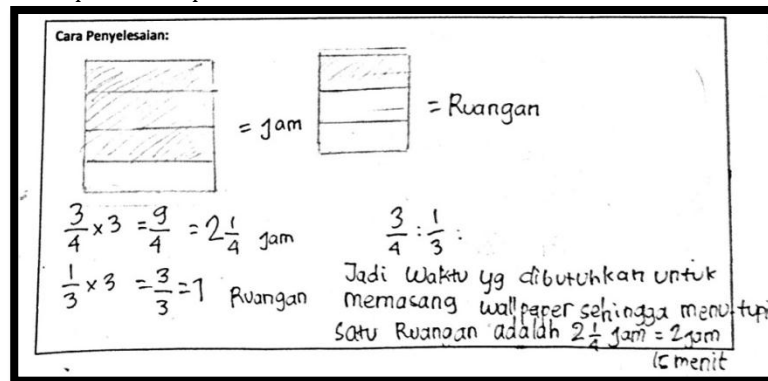 Cara Penyelesaian:
= jam
= Ruangan
3/4 x 3 = 9/4 = 2 1/4 jam
3/4 : 1/3 :
1/3 x 3 = 3/3 = 1 Ruangan
Jadi Waktu yg dibutuhkan untuk
memasang wallpaper sehingga menutupi
satu Ruangan adalah 2 1/4 jam = 2 jam
15 menit